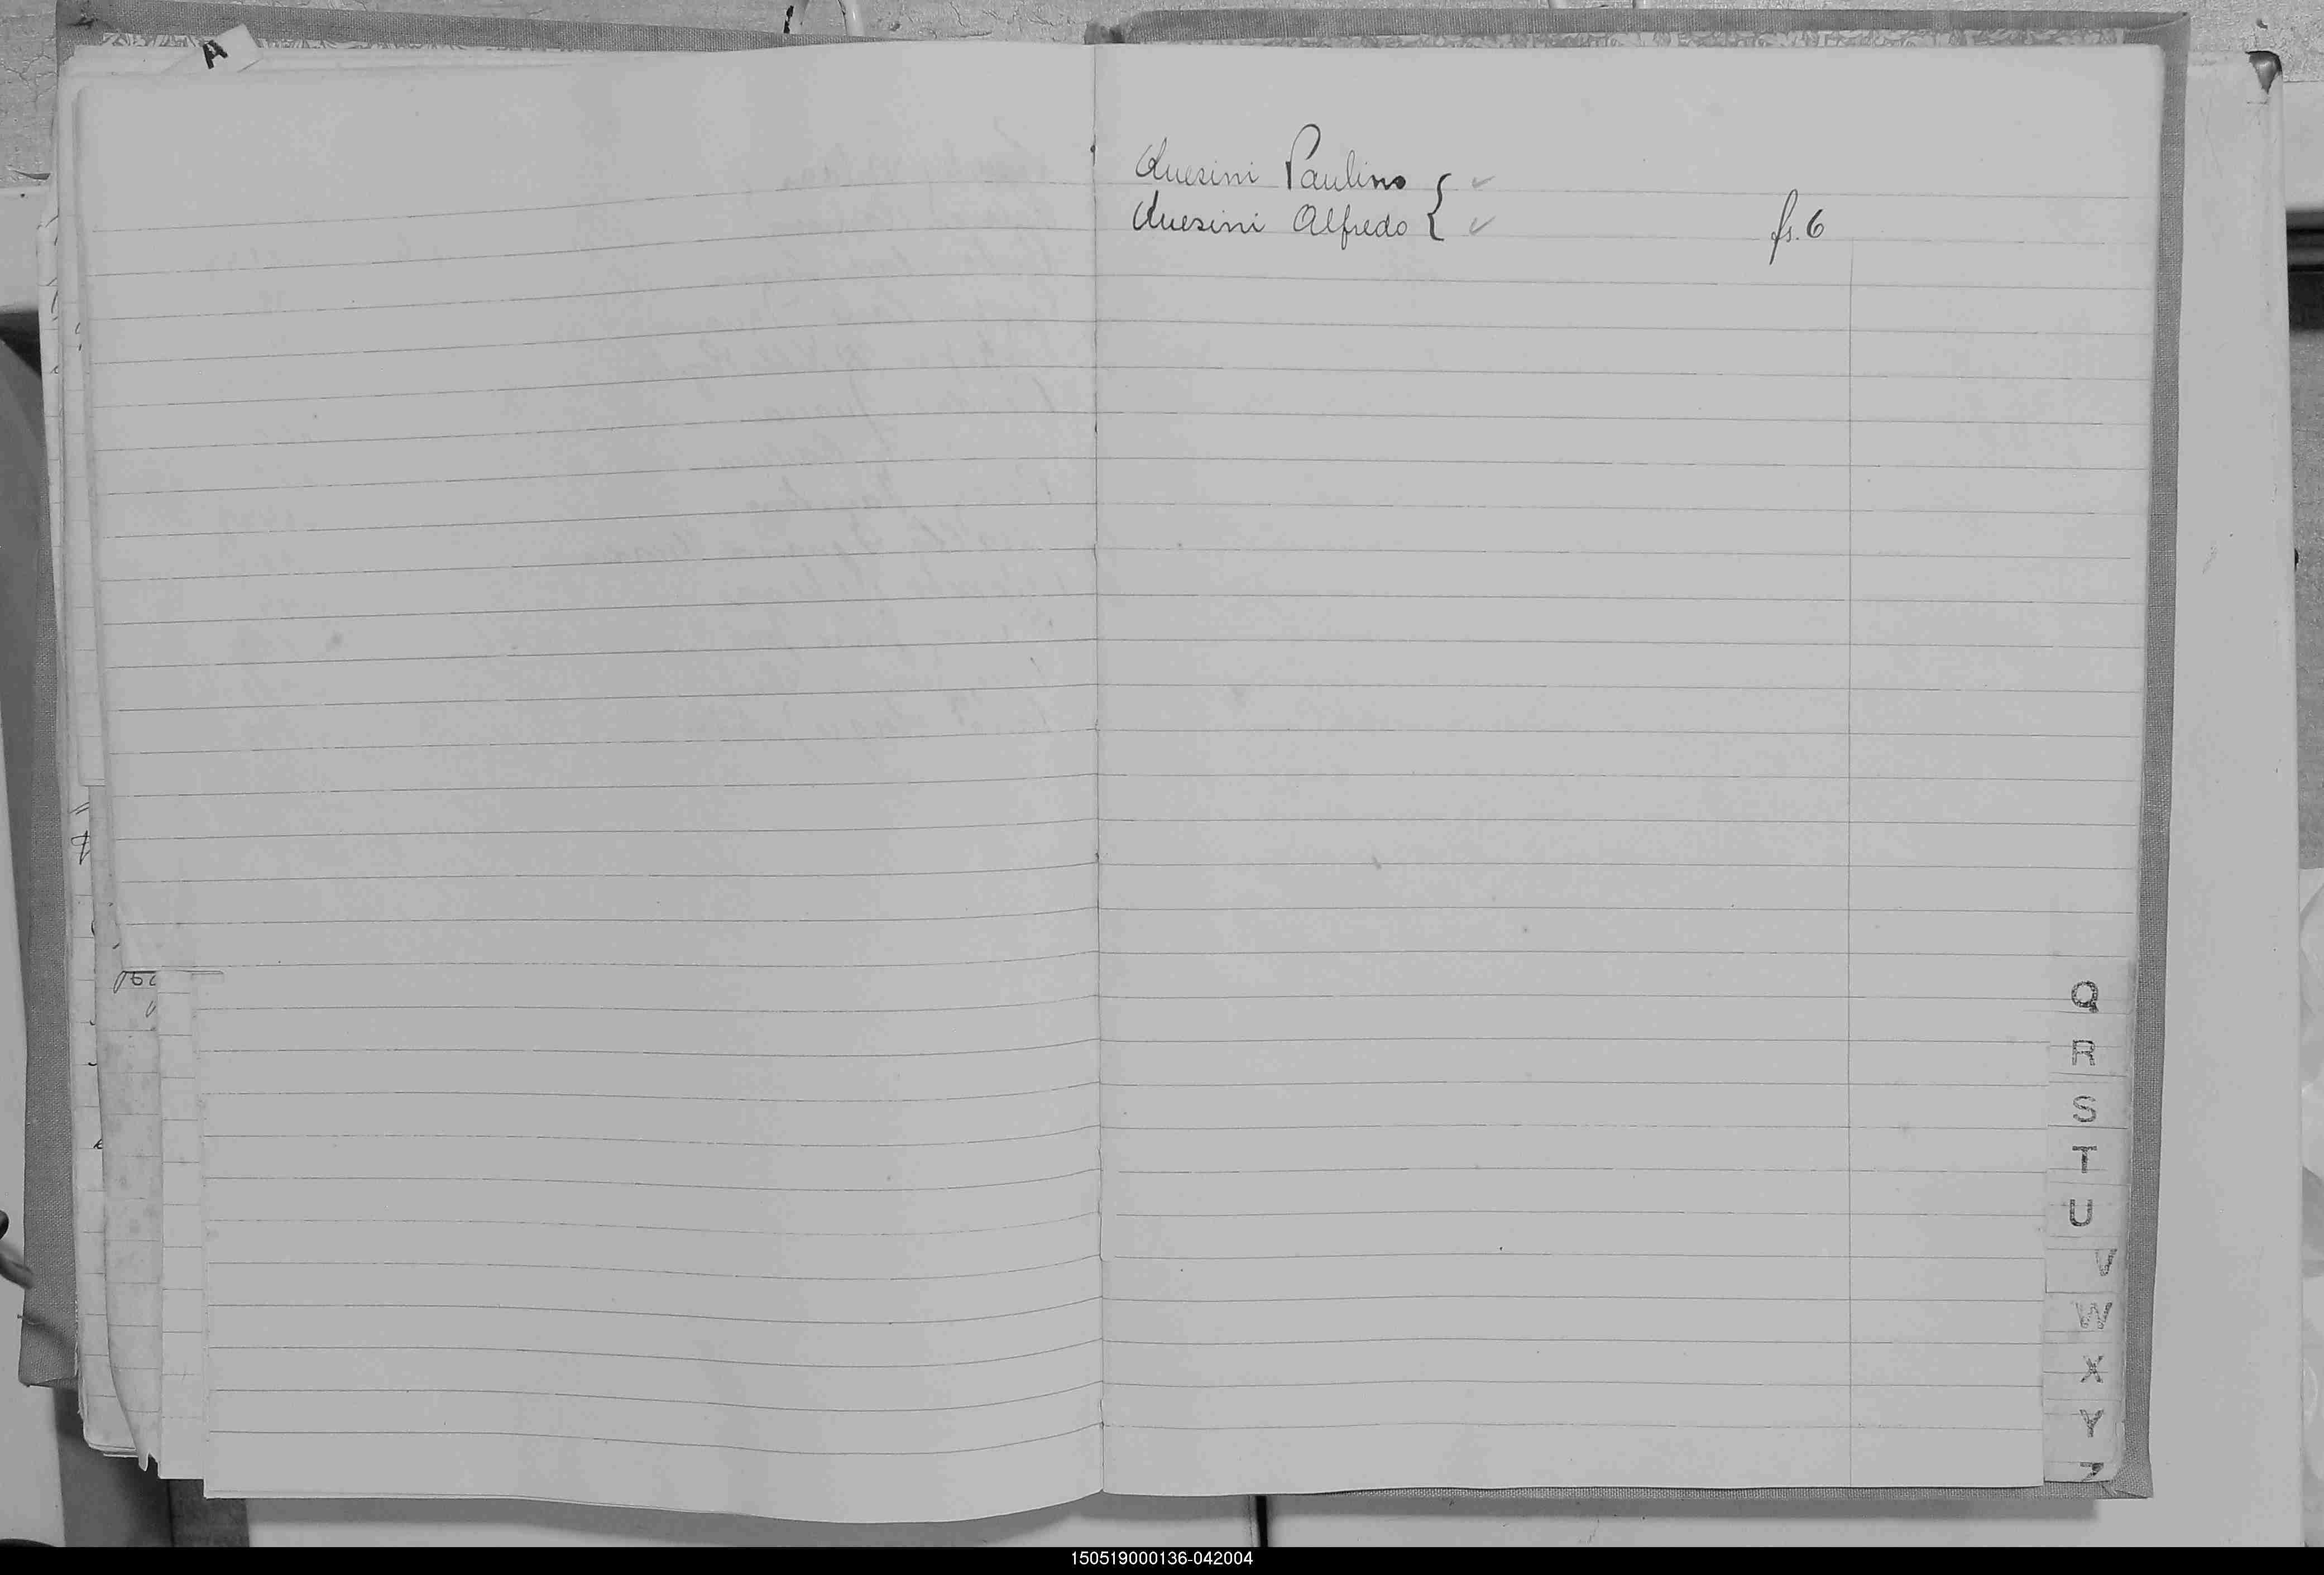 A
Quesini Paulino { ✓
Quesini Alfredo { ✓ fs. 6
Q
R
S
T
U
V
W
X
Y
Z
150519000136-042004